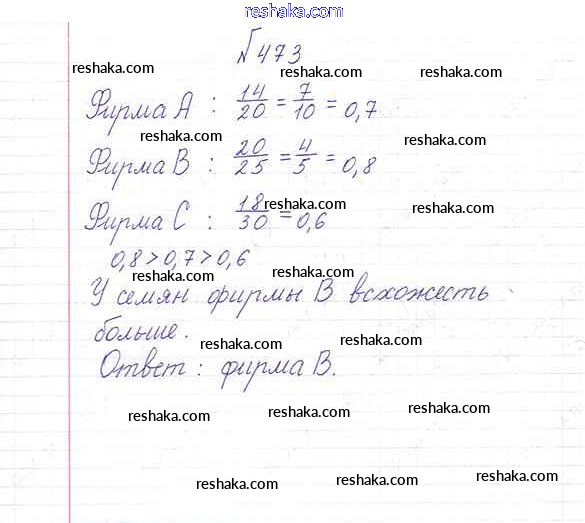 reshaka.com
№473
reshaka.com
reshaka.com
Фирма А : 14/20 = 7/10 = 0,7
reshaka.com
reshaka.com
Фирма В : 20/25 = 4/5 = 0,8
reshaka.com
reshaka.com
Фирма С : 18/30 = 0,6
0,8 > 0,7 > 0,6
reshaka.com
У семян фирмы В всхожесть
больше.
reshaka.com
reshaka.com
Ответ : фирма В.
reshaka.com
reshaka.com
reshaka.com
reshaka.com
reshaka.com
reshaka.com